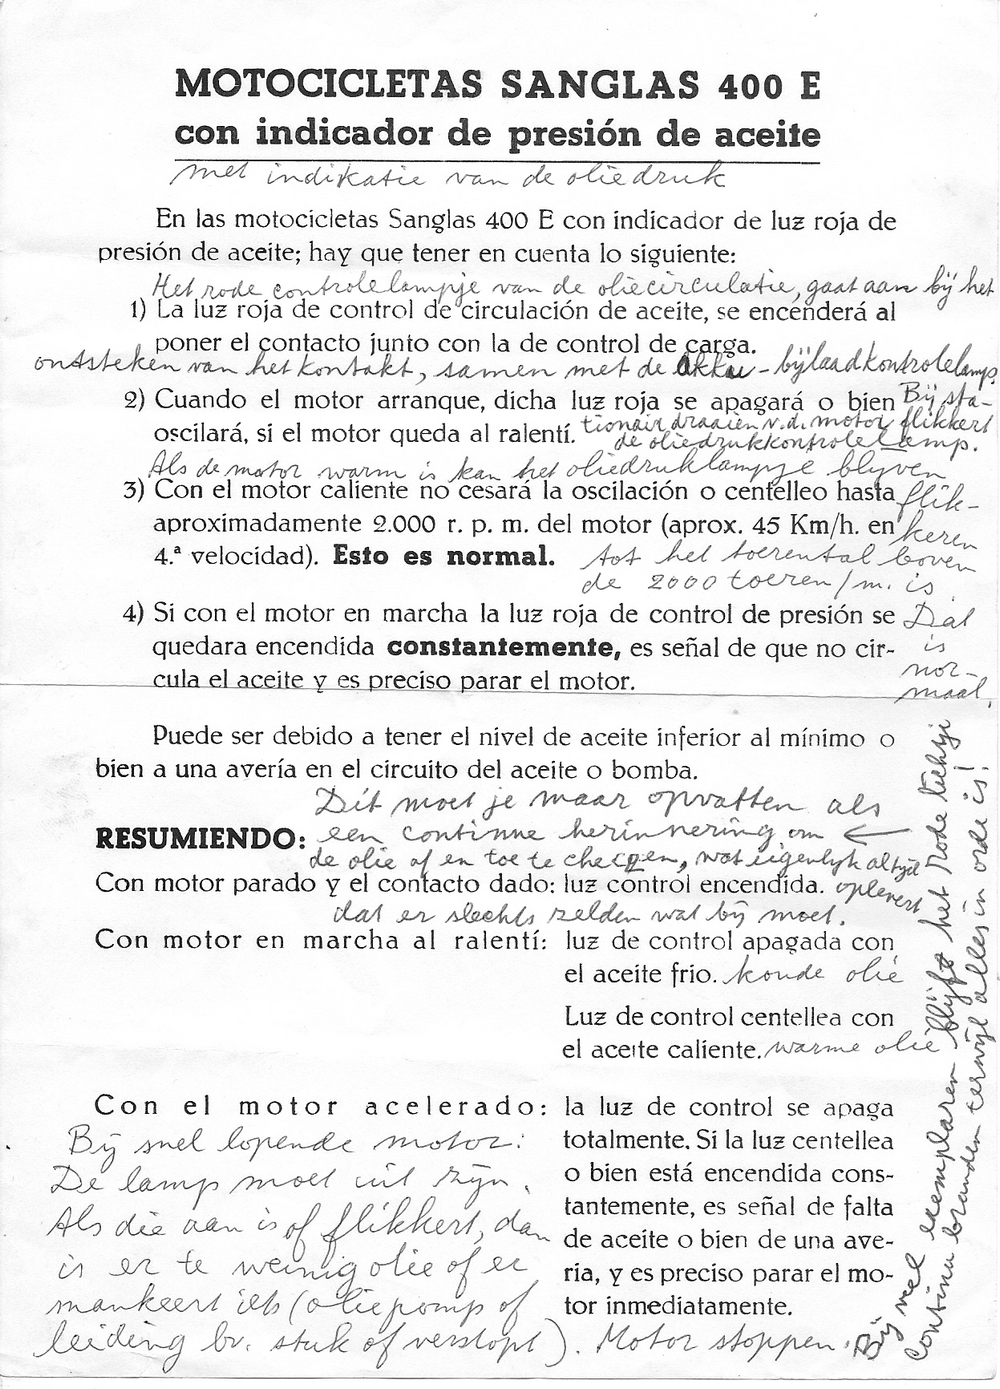 MOTOCICLETAS SANGLAS 400 E
con indicador de presión de aceite
met indikatie van de oliedruk
En las motocicletas Sanglas 400 E con indicador de luz roja de
presión de aceite; hay que tener en cuenta lo siguiente:
Het rode controlelampje van de oliecirculatie, gaat aan bij het
1) La luz roja de control de circulación de aceite, se encenderá al
poner el contacto junto con la de control de carga.
ontsteken van het kontakt, samen met de akku-bijlaadkontrolelamp.
2) Cuando el motor arranque, dicha luz roja se apagará o bien
Bij sta-
oscilará, si el motor queda al ralentí.
tionair draaien v.d. motor flikkert
de oliedrukkontrolelamp.
Als de motor warm is kan het oliedruklampje blijven
3) Con el motor caliente no cesará la oscilación o centelleo hasta
flik-
aproximadamente 2.000 r. p. m. del motor (aprox. 45 Km/h. en
keren
4.ª velocidad). Esto es normal.
tot het toerental boven
de 2000 toeren/m. is
4) Si con el motor en marcha la luz roja de control de presión se
Dat
quedara encendida constantemente, es señal de que no cir-
is
cula el aceite y es preciso parar el motor.
nor-
maal.
Puede ser debido a tener el nivel de aceite inferior al mínimo o
bien a una avería en el circuito del aceite o bomba.
Dit moet je maar opvatten als
RESUMIENDO:
een continue herinnering om
de olie af en toe te checken, wat eigenlijk altijd
Con motor parado y el contacto dado: luz control encendida.
oplevert
dat er slechts zelden wat bij moet.
Con motor en marcha al ralentí: luz de control apagada con
el aceite frio.
koude olie
Luz de control centellea con
el aceite caliente.
warme olie
Con el motor acelerado: la luz de control se apaga
totalmente. Si la luz centellea
o bien está encendida cons-
tantemente, es señal de falta
de aceite o bien de una ave-
ría, y es preciso parar el mo-
tor inmediatamente.
Bij snel lopende motor:
De lamp moet uit zijn.
Als die aan is of flikkert, dan
is er te weinig olie of er
mankeert iets (oliepomp of
leiding bv. stuk of verstopt). Motor stoppen.
Bij veel exemplaren blijft het rode lichtje
continu branden terwijl alles in orde is!